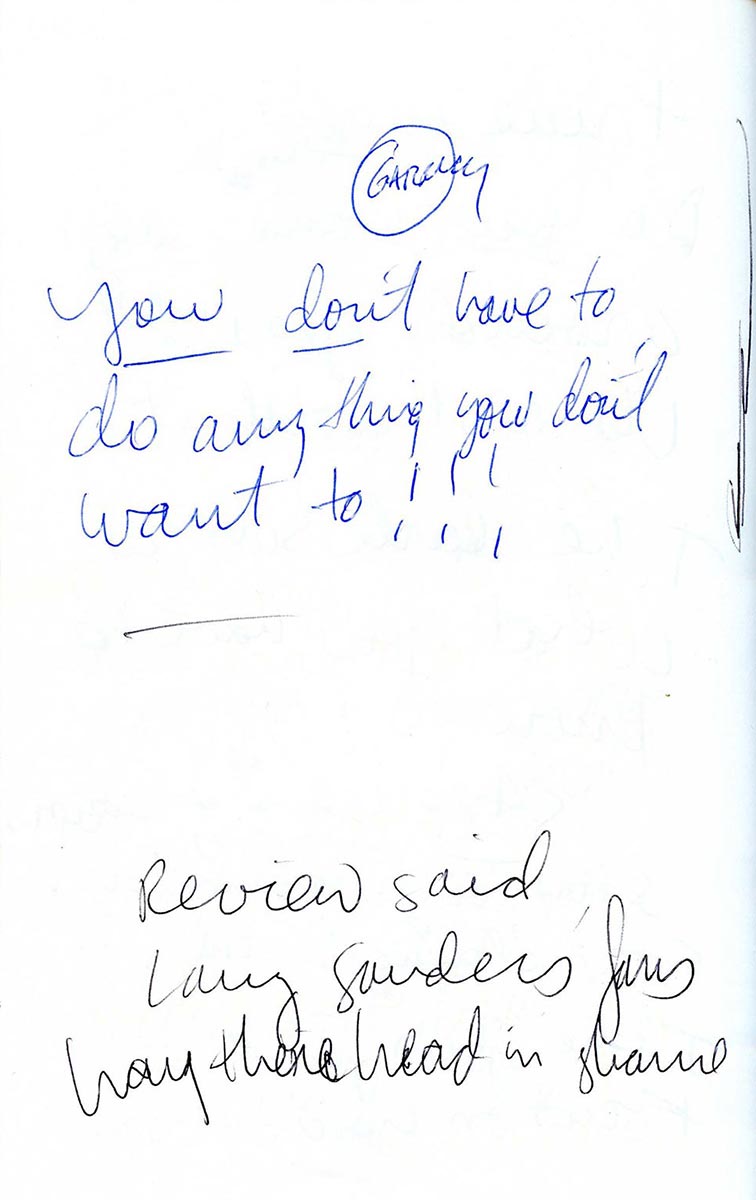 you don't have to
do anything you don't
want to!!!
Review said
Larry Sanders' fans
hang their head in shame